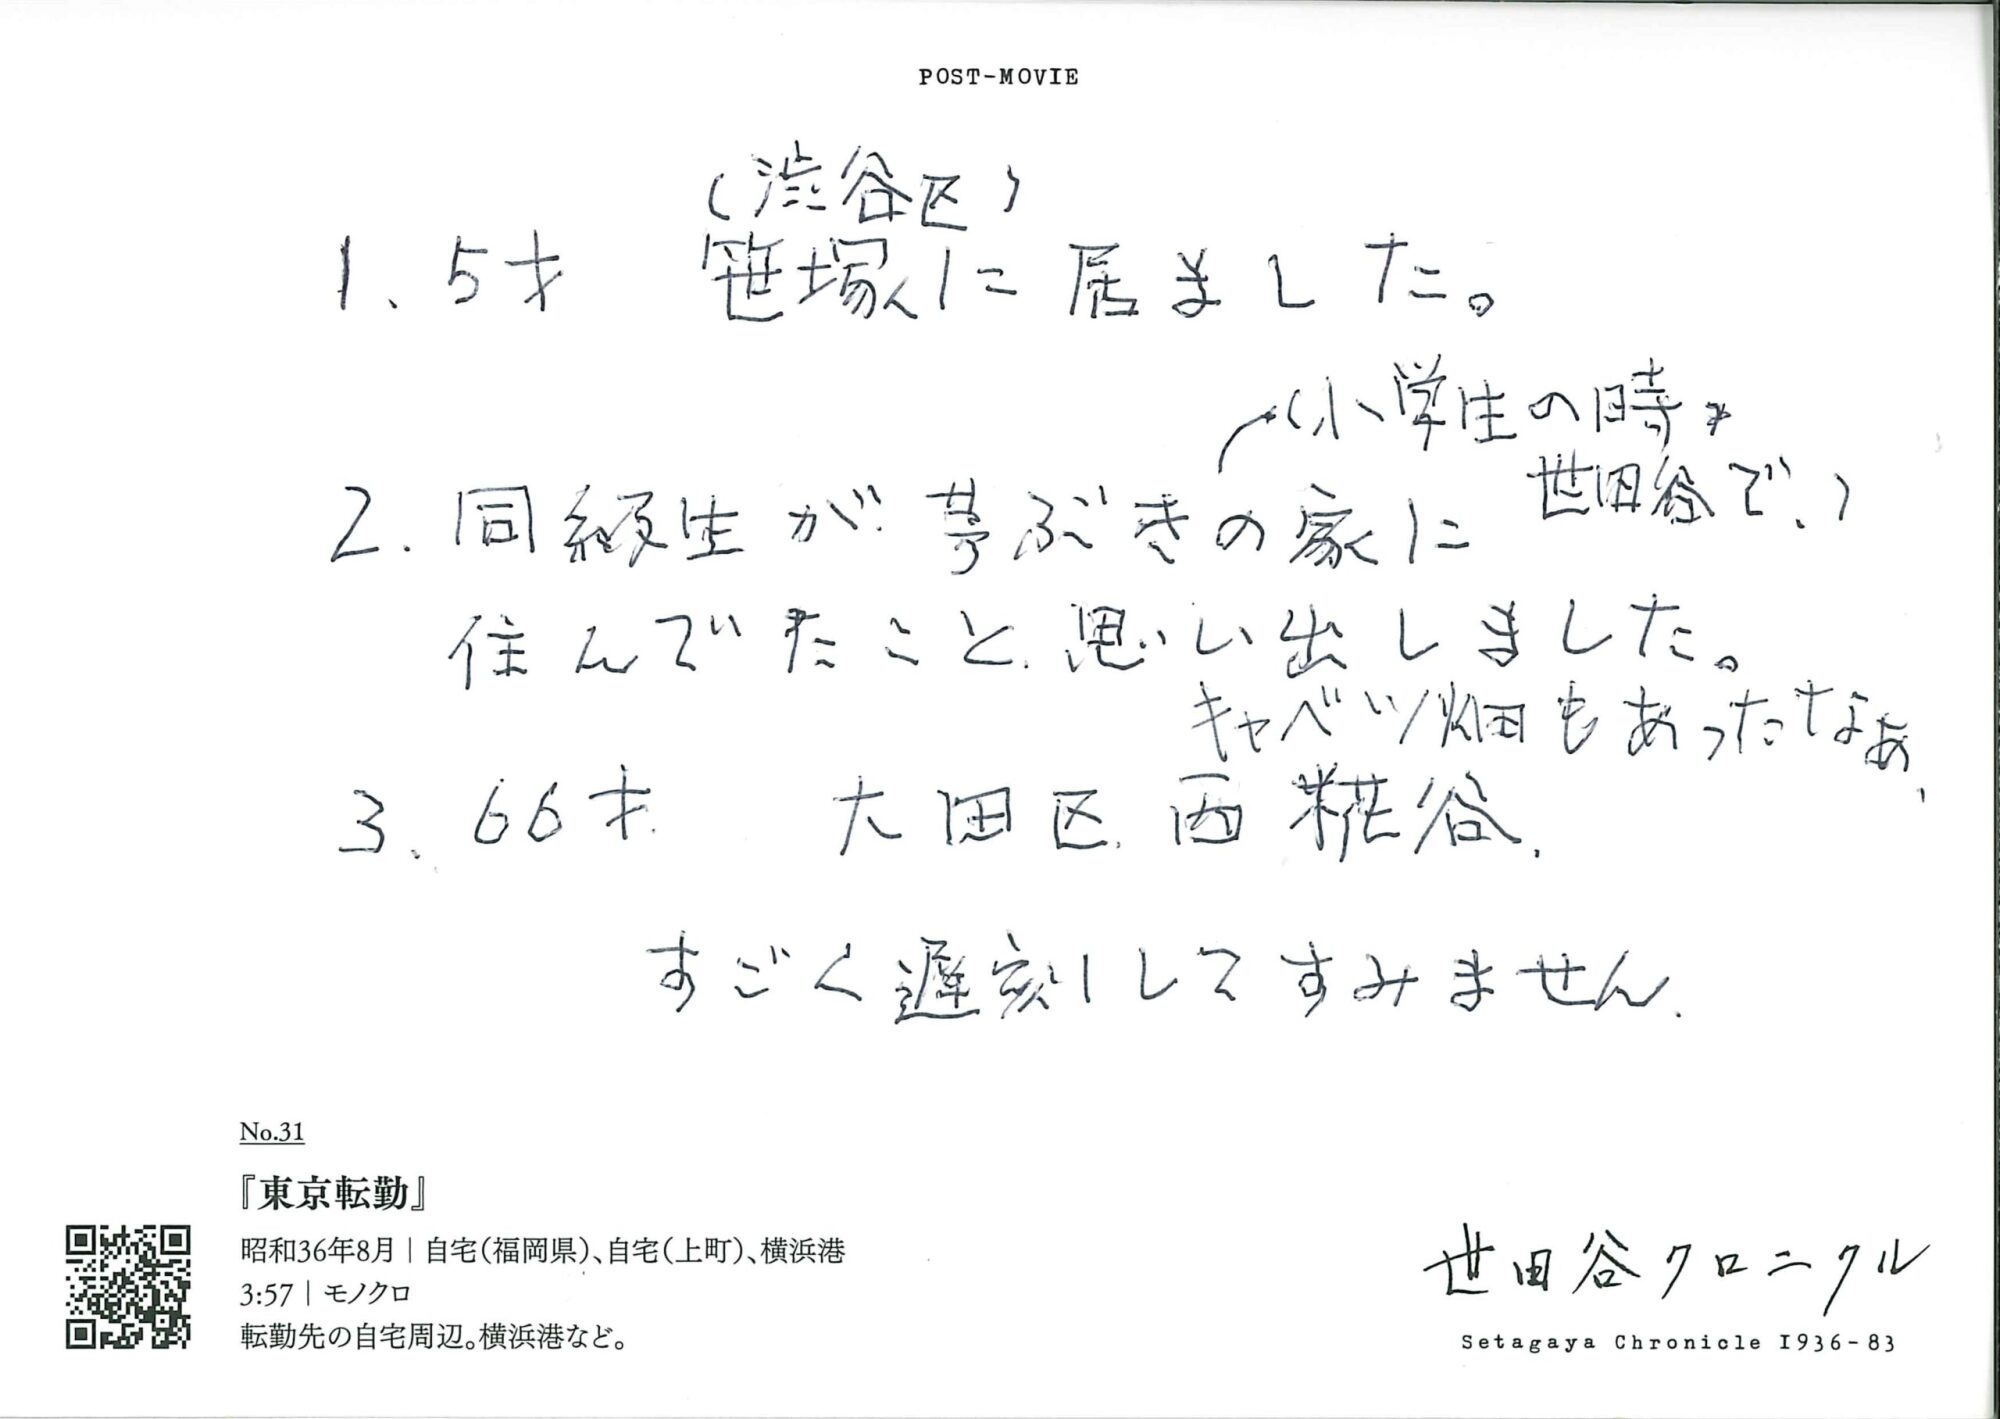 POST-MOVIE
(渋谷区)
1、5才 笹塚に居ました。
(小学生の時
世田谷で、)
2. 同級生が茅ぶきの家に
住んでたこと思い出しました。
キャベツ畑もあったなあ、
3、66才 大田区 西糀谷.
すごく遅刻してすみません.
No.31
『東京転勤』
昭和36年8月|自宅(福岡県)、自宅(上町)、横浜港
3:57|モノクロ
転勤先の自宅周辺。横浜港など。
世田谷クロニクル
Setagaya Chronicle 1936-83